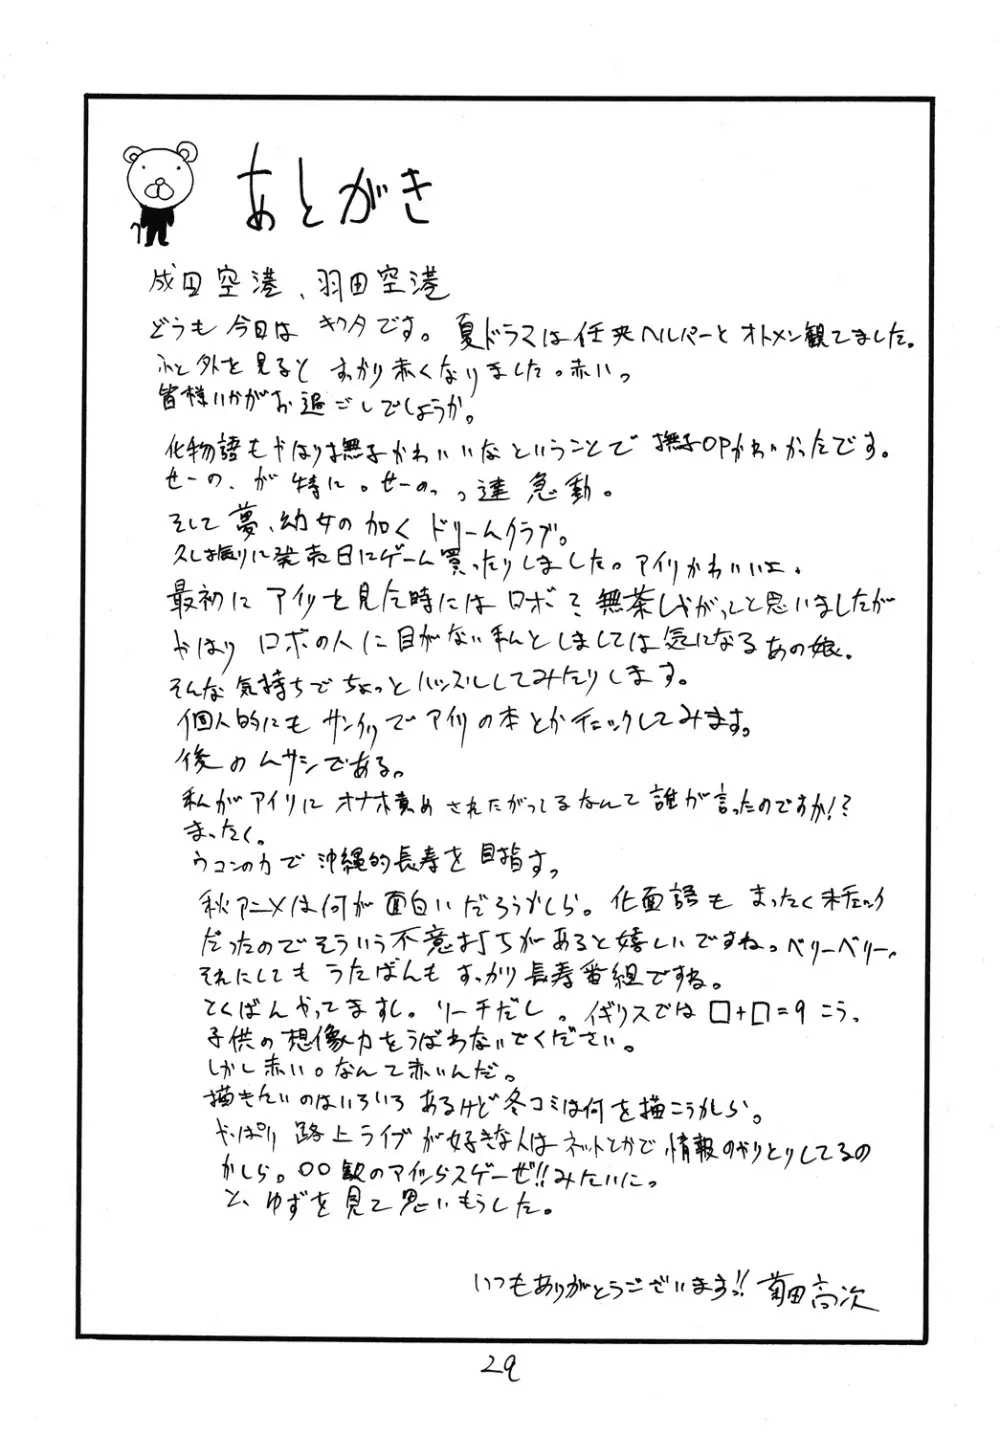 あとがき
成田空港、羽田空港
どうも今日は キクタです。夏ドラマは任侠ヘルパーとオトメン観てました。
ふと外を見ると すっかり赤くなりました。赤いっ
皆様いかがお過ごしでしょうか。
化物語もやはり撫子かわいいなということで 撫子OPかわいかったです。
せーの、が特に。せーのっっ達 急動。
そして夢、幼女の如く ドリームクラブ。
久し振りに発売日にゲーム買ったりしました。アイリかわいいよ、
最初に アイリを見た時には ロボて 無茶しやがってと思いましたが
やはり ロボの人に目がない私としましては気になるあの娘、
そんな気持ちで ちょっとハッスルしてみたりします。
個人的にもサンクリでアイリの本とかチェックしてみます。
後のムサシである。
私がアイリに オナホ責めされたがってるなんて 誰が言ったのですか!?
まったく。
ウコンの力で 沖縄的長寿を目指す。
秋アニメは何が面白いだろうかしら。化物語も まったく未チェック
だったのでそういう不意打ちがあると嬉しいですねっベリーベリー、
それにしても うたばんも すっかり長寿番組ですね。
とくばんやってますし。リーチだし。イギリスでは □+□=9 こう、
子供の想像力をうばわないでください。
しかし赤い。なんて赤いんだ。
描きたいのはいろいろ あるけど冬コミは何を描こうかしら。
やっぱり 路上ライブが好きな人は ネットとかで情報のやりとりしてるの
かしら。○○駅のアイツらスゲーぜ!!みたいにっ
と、ゆずを見て思いもうした。
いつもありがとうございますっ!! 菊田高次
29